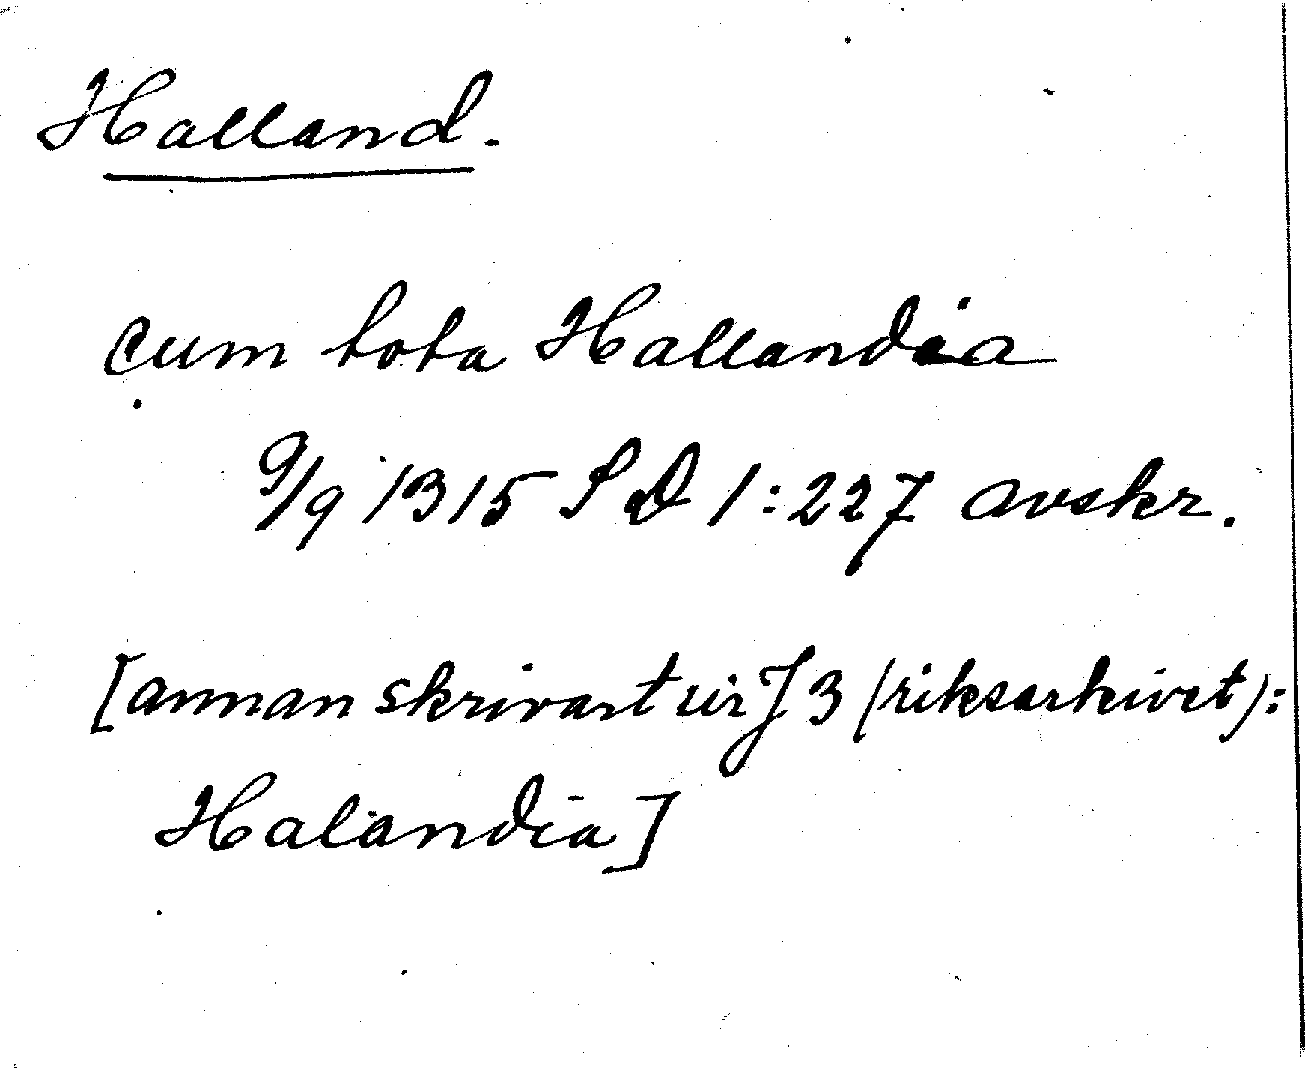 Halland.
cum tota Hallandia
9/9 1315 SD 1:227 avskr.
[annan skrivart ur J 3 (riksarkivet):
Halandia]